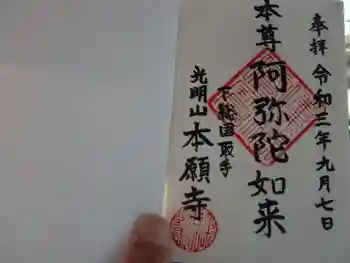 奉拝 令和三年九月七日
本尊 阿弥陀如来
下総国取手
光明山本願寺